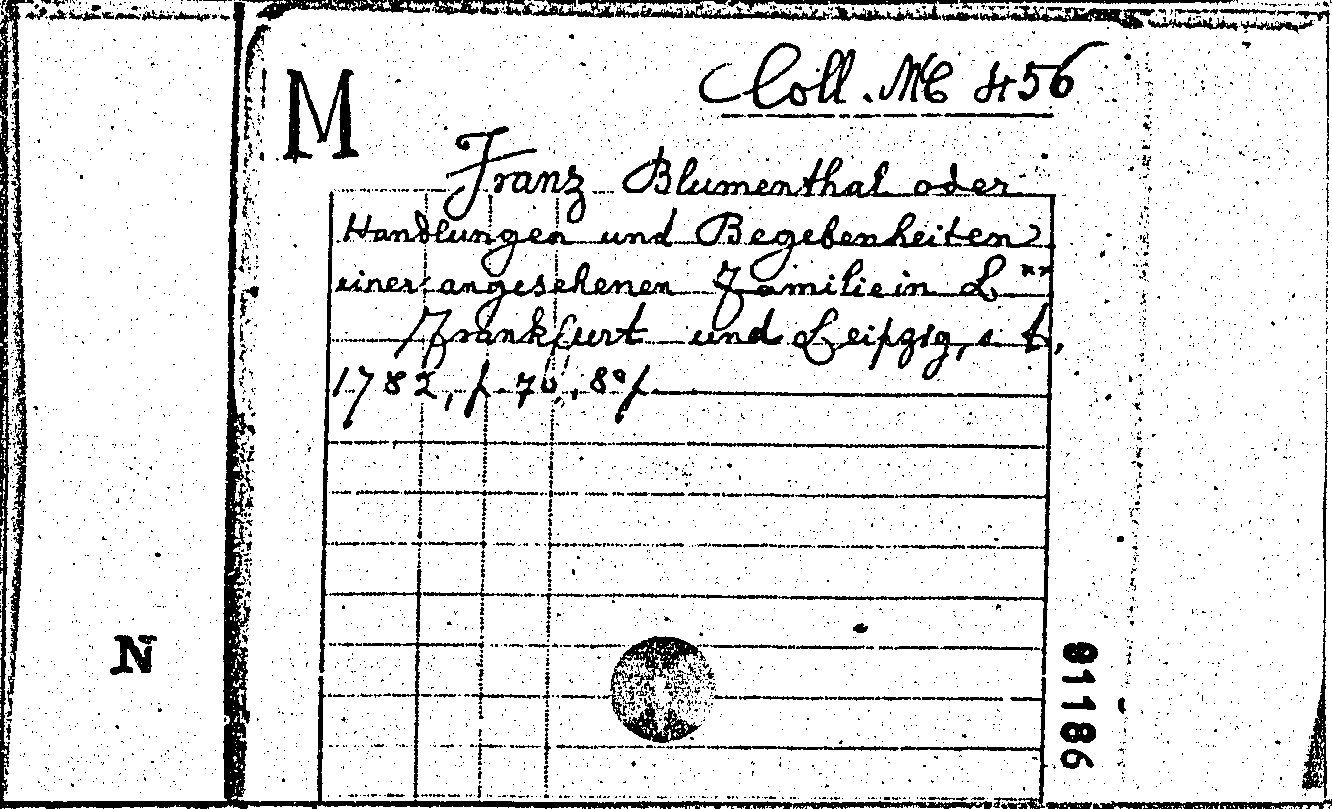 M
Coll. MC 456
Franz Blumenthal oder
Handlungen und Begebenheiten
einer angesehenen Familie in L**
Frankfurt und Leipzig, s. t.,
1782, p. 70, 8°/.
N
81186